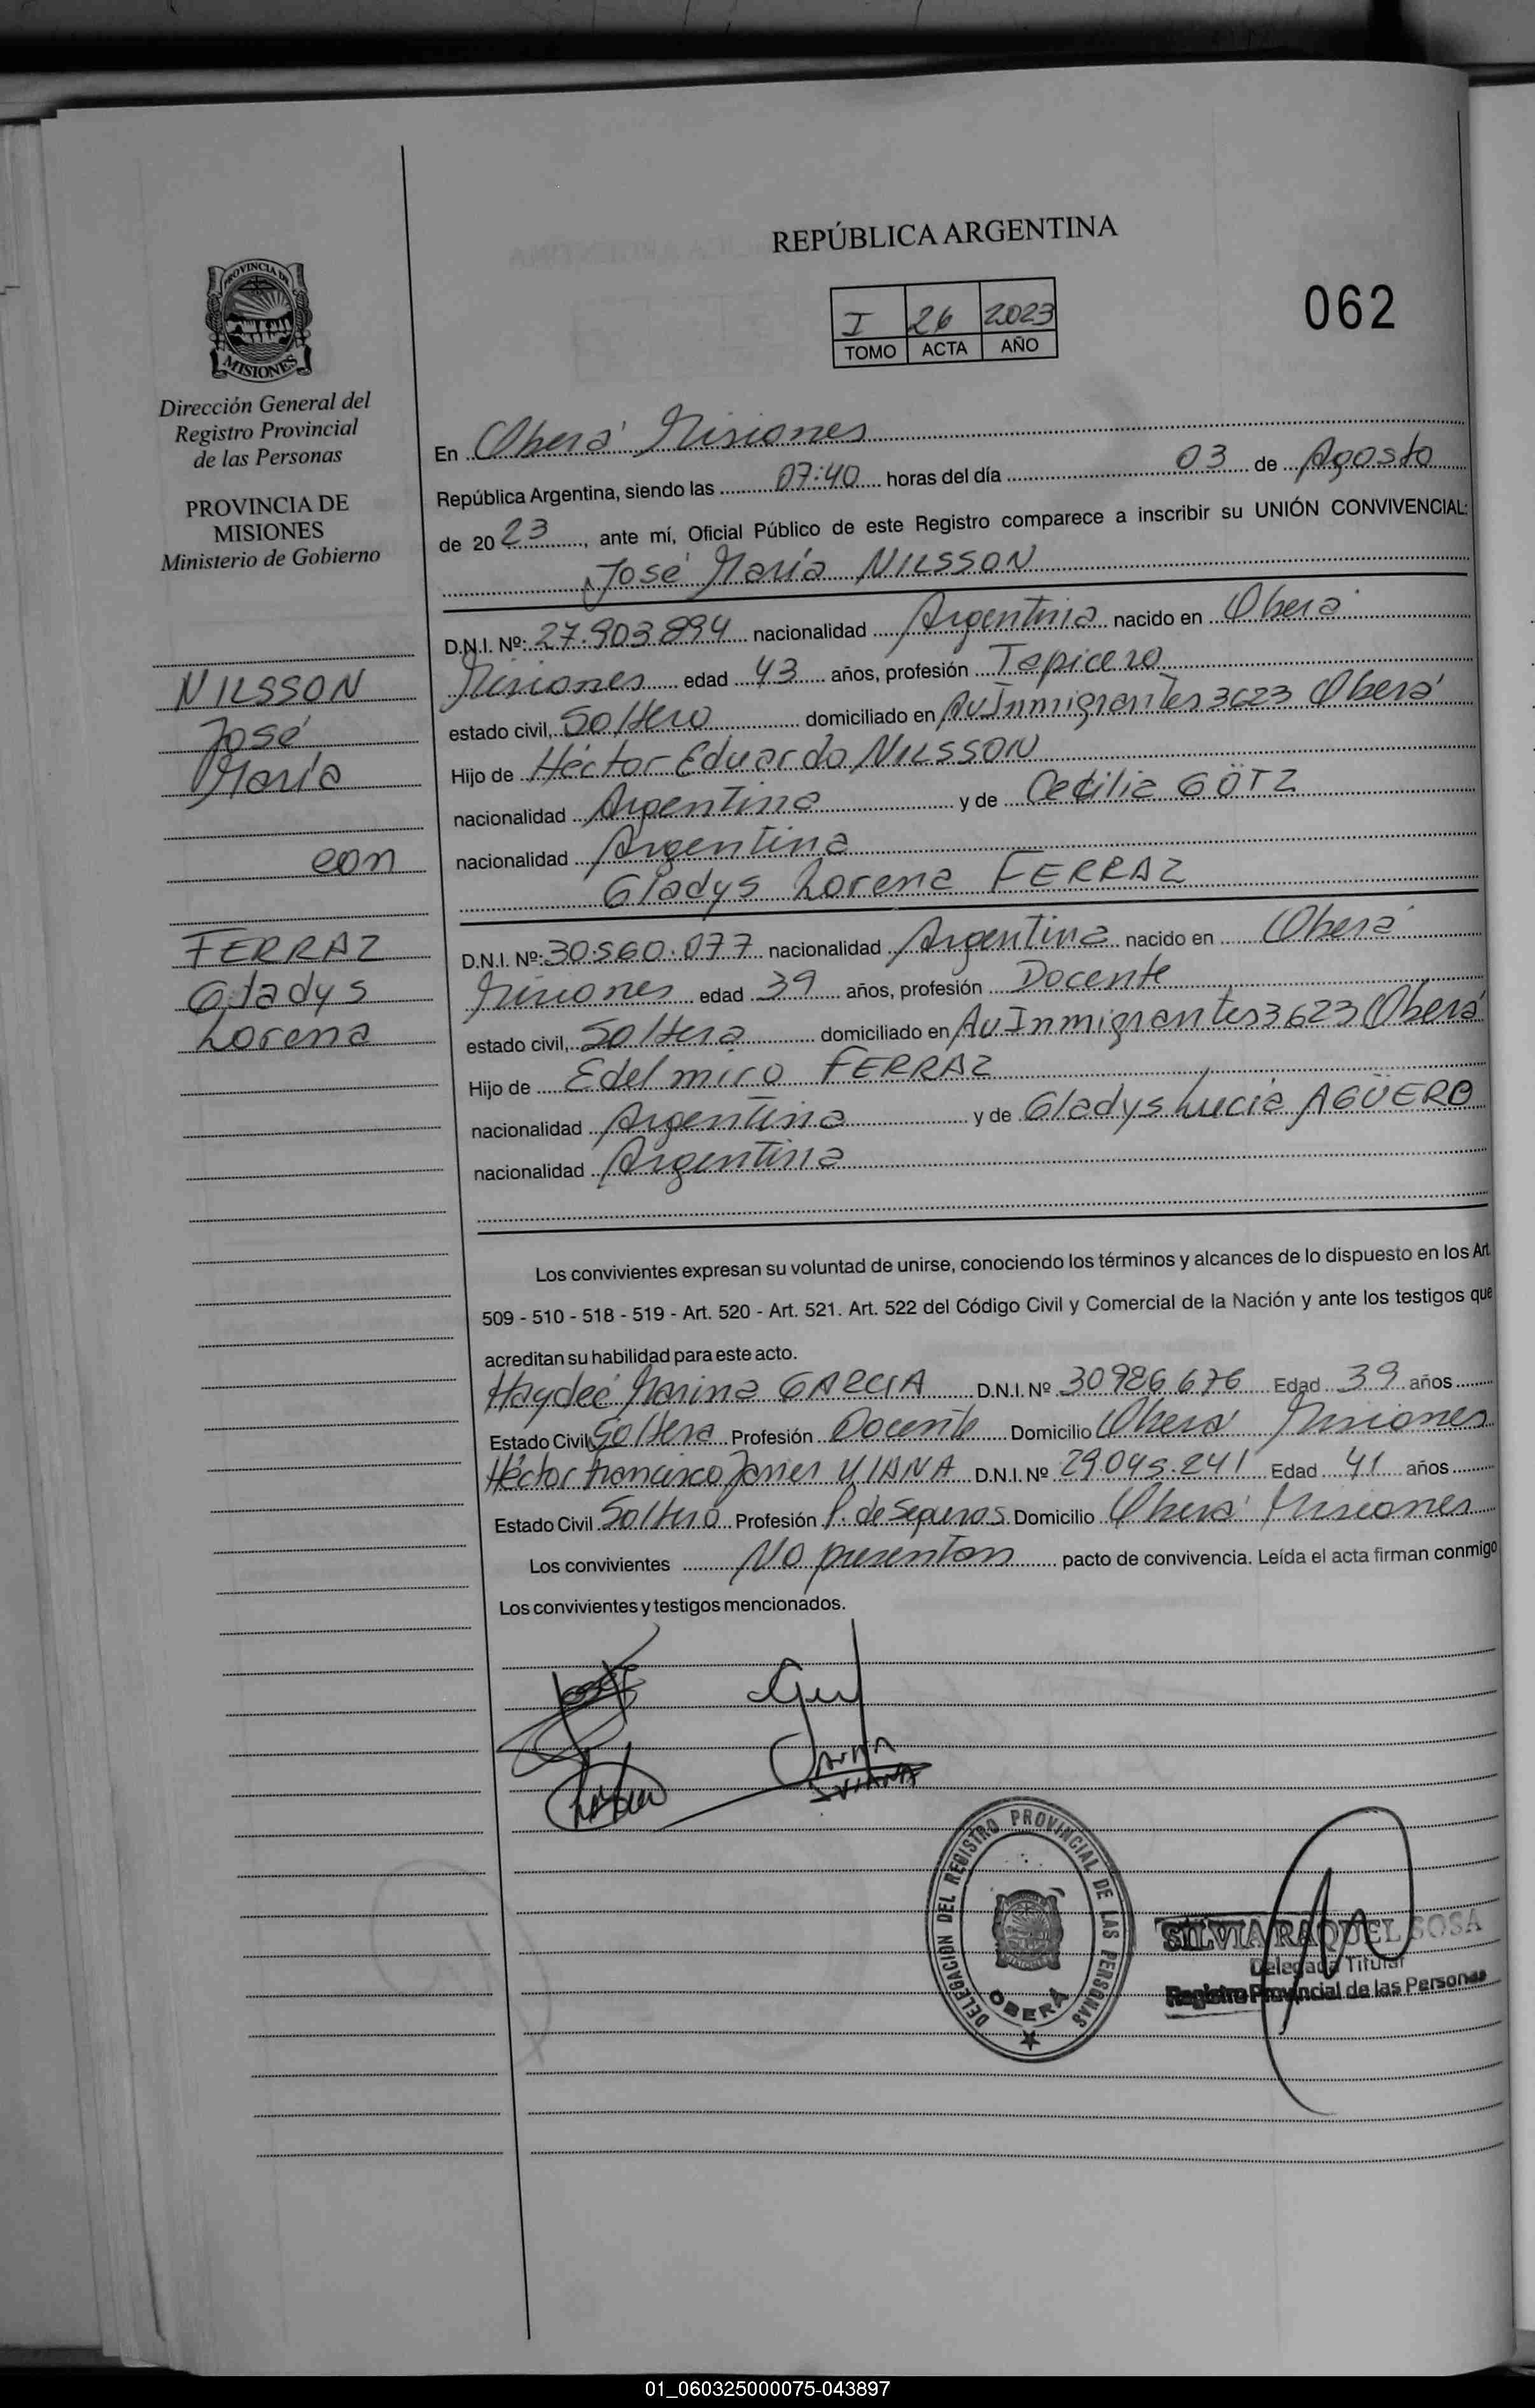 REPÚBLICA ARGENTINA
062
I 26 2023
TOMO ACTA AÑO
PROVINCIA DE
MISIONES
Dirección General del
Registro Provincial
de las Personas
PROVINCIA DE
MISIONES
Ministerio de Gobierno
NILSSON
José
María
con
FERRAZ
Gladys
Lorena
En Oberá Misiones
República Argentina, siendo las 07:40 horas del día 03 de Agosto
de 2023, ante mí, Oficial Público de este Registro comparece a inscribir su UNIÓN CONVIVENCIAL:
José María NILSSON
D.N.I. Nº: 27.903.894 nacionalidad Argentina nacido en Oberá
Misiones edad 43 años, profesión Tapicero
estado civil, Soltero domiciliado en Av Inmigrantes 3623 Oberá
Hijo de Héctor Eduardo NILSSON
nacionalidad Argentina y de Cecilia GÖTZ
nacionalidad Argentina
Gladys Lorena FERRAZ
D.N.I. Nº: 30.560.077 nacionalidad Argentina nacido en Oberá
Misiones edad 39 años, profesión Docente
estado civil, Soltera domiciliado en Av Inmigrantes 3623 Oberá
Hijo de Edelmiro FERRAZ
nacionalidad Argentina y de Gladys Lucia AGÜERO
nacionalidad Argentina
Los convivientes expresan su voluntad de unirse, conociendo los términos y alcances de lo dispuesto en los Art.
509 - 510 - 518 - 519 - Art. 520 - Art. 521. Art. 522 del Código Civil y Comercial de la Nación y ante los testigos que
acreditan su habilidad para este acto.
Haydeé Marina GARCIA D.N.I. Nº 30986676 Edad 39 años
Estado Civil Soltera Profesión Docente Domicilio Oberá Misiones
Héctor Francisco Javier VIANA D.N.I. Nº 29.045.241 Edad 41 años
Estado Civil Soltero Profesión P. de Seguros Domicilio Oberá Misiones
Los convivientes No presentan pacto de convivencia. Leída el acta firman conmigo
Los convivientes y testigos mencionados.
VIANA
DELEGACIÓN DEL REGISTRO PROVINCIAL DE LAS PERSONAS
OBERÁ
SILVIA RAQUEL SOSA
Delegada Titular
Registro Provincial de las Personas
01_060325000075-043897